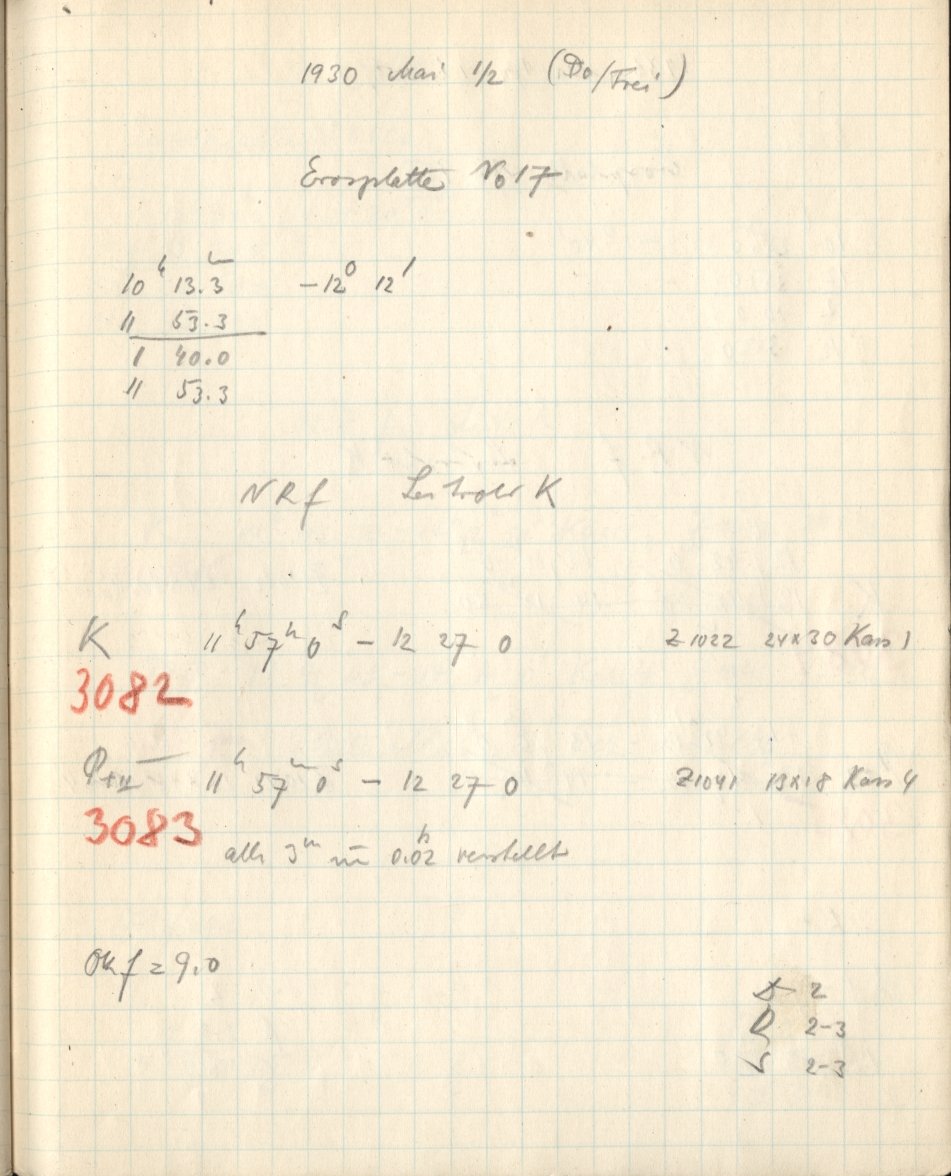 1930 Mai 1/2 (Do/Frei)
Erosplatte No 17
10ʰ 13.3ᵐ −12⁰ 12'
11 53.3
1 40.0
11 53.3
NRf Leitrohr K
K 11ʰ 57ᵐ 0ˢ − 12 27 0 Z 1022 24x30 Kass 1
3082
11ʰ 57ᵐ 0ˢ − 12 27 0 Z1041 13x18 Kass 4
3083
alle 3ᵐ um 0.02 verstellt
Okf = 9.0
2
2-3
2-3